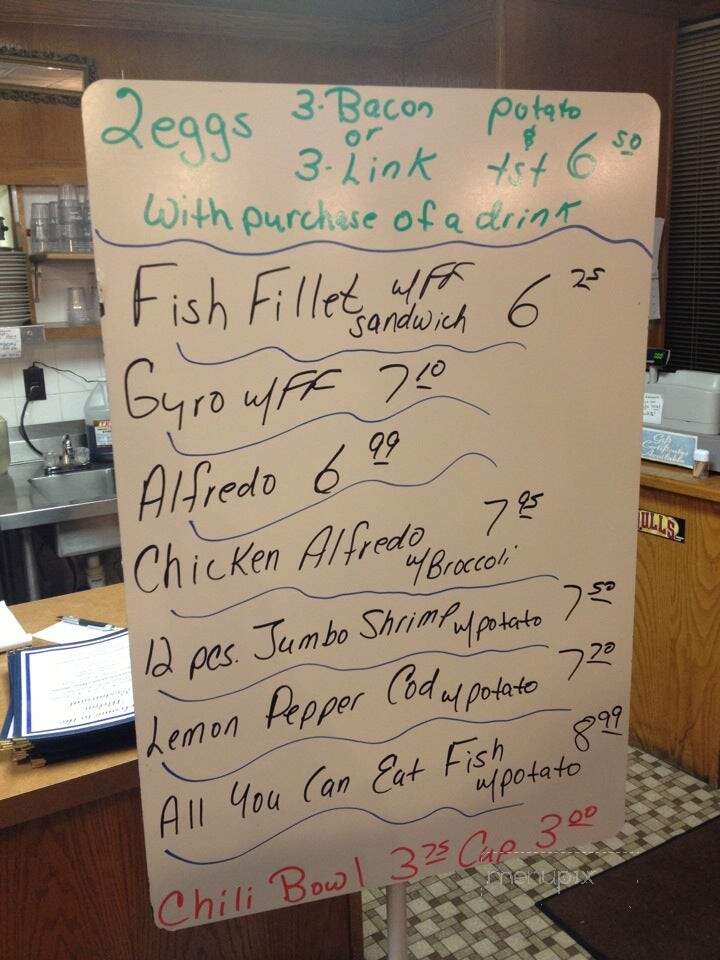 2eggs 3-Bacon or 3-Link potato & tst 6 50
With purchase of a drink
Fish Fillet w/FF sandwich 6 25
Gyro w/FF 7 10
Alfredo 6 99
Chicken Alfredo w/Broccoli 7 95
12 pcs. Jumbo Shrimp w/potato 7 50
Lemon Pepper Cod w/potato 7 20
All You Can Eat Fish w/potato 8 99
Chili Bowl 3 25 Cup 3 00
menupix
Gift Certificates Available
BULLS